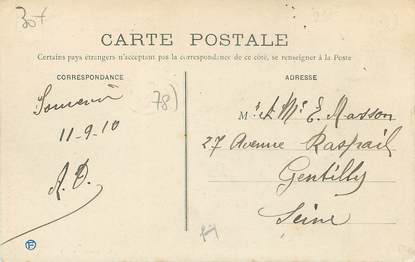 30+
CARTE POSTALE
Certains pays étrangers n'acceptant pas la correspondance de ce côté, se renseigner à la Poste
CORRESPONDANCE
ADRESSE
Souvenir
11-9-10
A. D.
78)
M. et Me E. Masson
27 Avenue Raspail
Gentilly
Seine